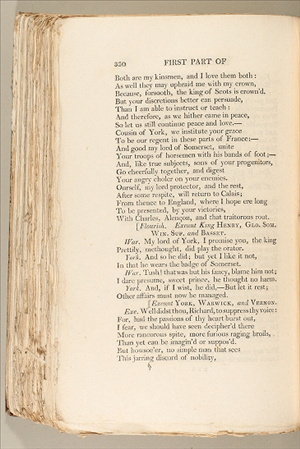 350 FIRST PART OF
Both are my kinsmen, and I love them both:
As well they may upbraid me with my crown,
Because, forsooth, the king of Scots is crown'd.
But your discretions better can persuade,
Than I am able to instruct or teach:
And therefore, as we hither came in peace,
So let us still continue peace and love.—
Cousin of York, we institute your grace
To be our regent in these parts of France:—
And good my lord of Somerset, unite
Your troops of horsemen with his bands of foot;—
And, like true subjects, sons of your progenitors,
Go cheerfully together, and digest
Your angry choler on your enemies.
Ourself, my lord protector, and the rest,
After some respite, will return to Calais;
From thence to England, where I hope ere long
To be presented, by your victories,
With Charles, Alençon, and that traitorous rout.
[Flourish. Exeunt King HENRY, GLO. SOM.
WIN. SUF. and BASSET.
War. My lord of York, I promise you, the king
Prettily, methought, did play the orator.
York. And so he did; but yet I like it not,
In that he wears the badge of Somerset.
War. Tush! that was but his fancy, blame him not;
I dare presume, sweet prince, he thought no harm.
York. And, if I wist, he did,—But let it rest;
Other affairs must now be managed.
[Exeunt YORK, WARWICK, and VERNON.
Exe. Well didst thou, Richard, to suppress thy voice:
For, had the passions of thy heart burst out,
I fear, we should have seen decipher'd there
More rancorous spite, more furious raging broils,
Than yet can be imagin'd or suppos'd.
But howsoe'er, no simple man that sees
This jarring discord of nobility,